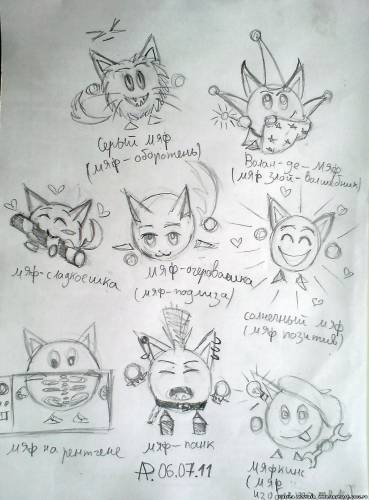 Серый мяф
(мяф-оборотень)
Волан-де-Мяф
(мяф злой-волшебник)
мяф-сладкоешка
мяф-очаровашка
(мяф-подлиза)
солнечный мяф
(мяф позитив)
мяф на рентгене
мяф-панк
мяфкинс
(мяф
06.07.11